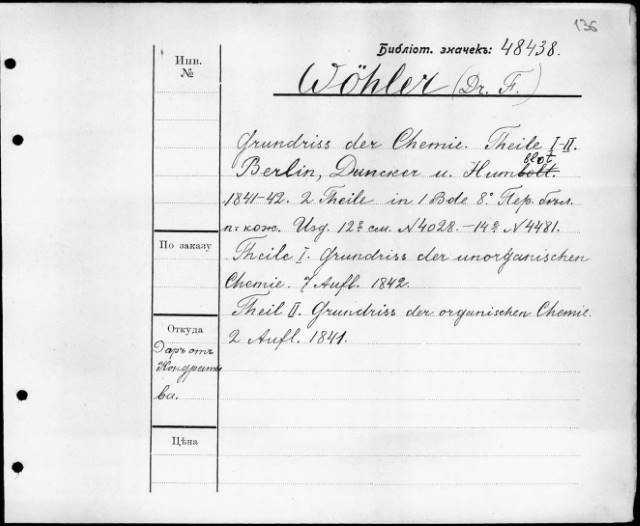 136
Библіот. значекъ: 48438.
Инв.
№
Wöhler (Dr. F.)
Grundriss der Chemie. Theile I-II.
Berlin, Duncker u. Humblot
1841-42. 2 Theile in 1 Bde 8° Пер. бѣл.
п. кож. Изд. 12° см. №4028.-14° №4481.
По заказу
Theile I. Grundriss der unorganischen
Chemie. 7 Aufl. 1842.
Theil II. Grundriss der organischen Chemie.
2 Aufl. 1841.
Откуда
Даръ отъ
Кондратье
ва.
Цѣна